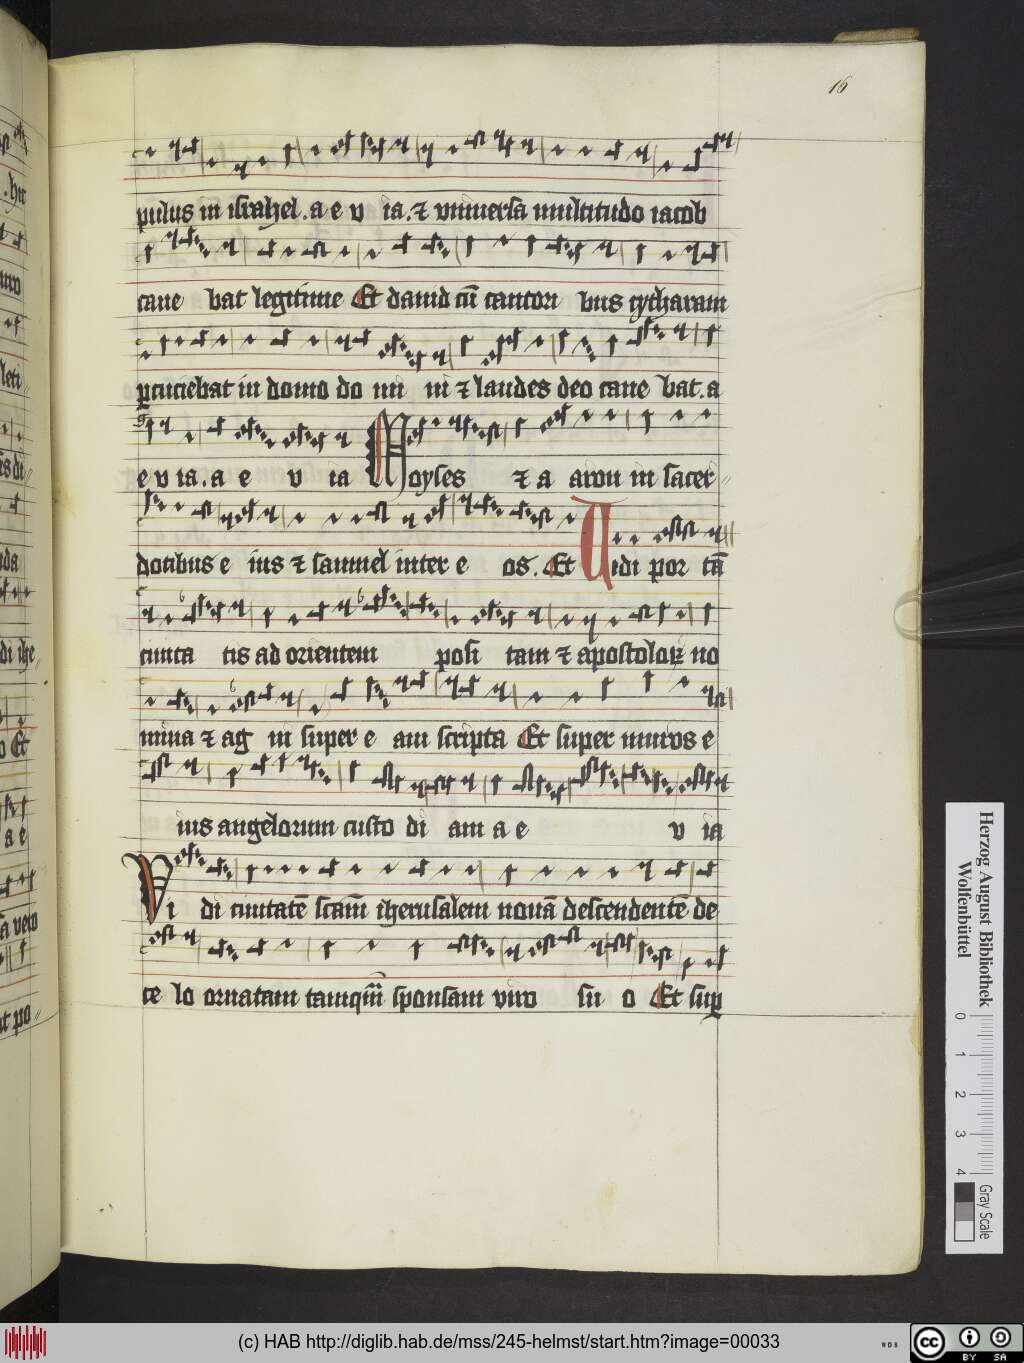 16
pulus in israhel . a e v ia . ⁊ vniuersa multitudo iacob
cane bat legitime Et dauid cū cantori bus cytharam
ꝑcuciebat in domo do mi ni ⁊ laudes deo cane bat . a
e v ia . a e v ia Moyses ⁊ a aron in sacer
dotibus e ius ⁊ samuel inter e os . Et Uidi por tā
ciuita tis ad orientem posi tam ⁊ apostoloꝝ no
mina ⁊ ag ni super e am scripta Et super muros e
ius angelorum custo di am a e v ia
Vi di ciuitatē scām iherusalem nouā descendentē de
ce lo ornatam tamqm̄ sponsam viro su o Et suꝑ
Herzog August Bibliothek
Wolfenbüttel
0 1 2 3 4
Gray Scale
(c) HAB http://diglib.hab.de/mss/245-helmst/start.htm?image=00033
WDB
cc BY SA